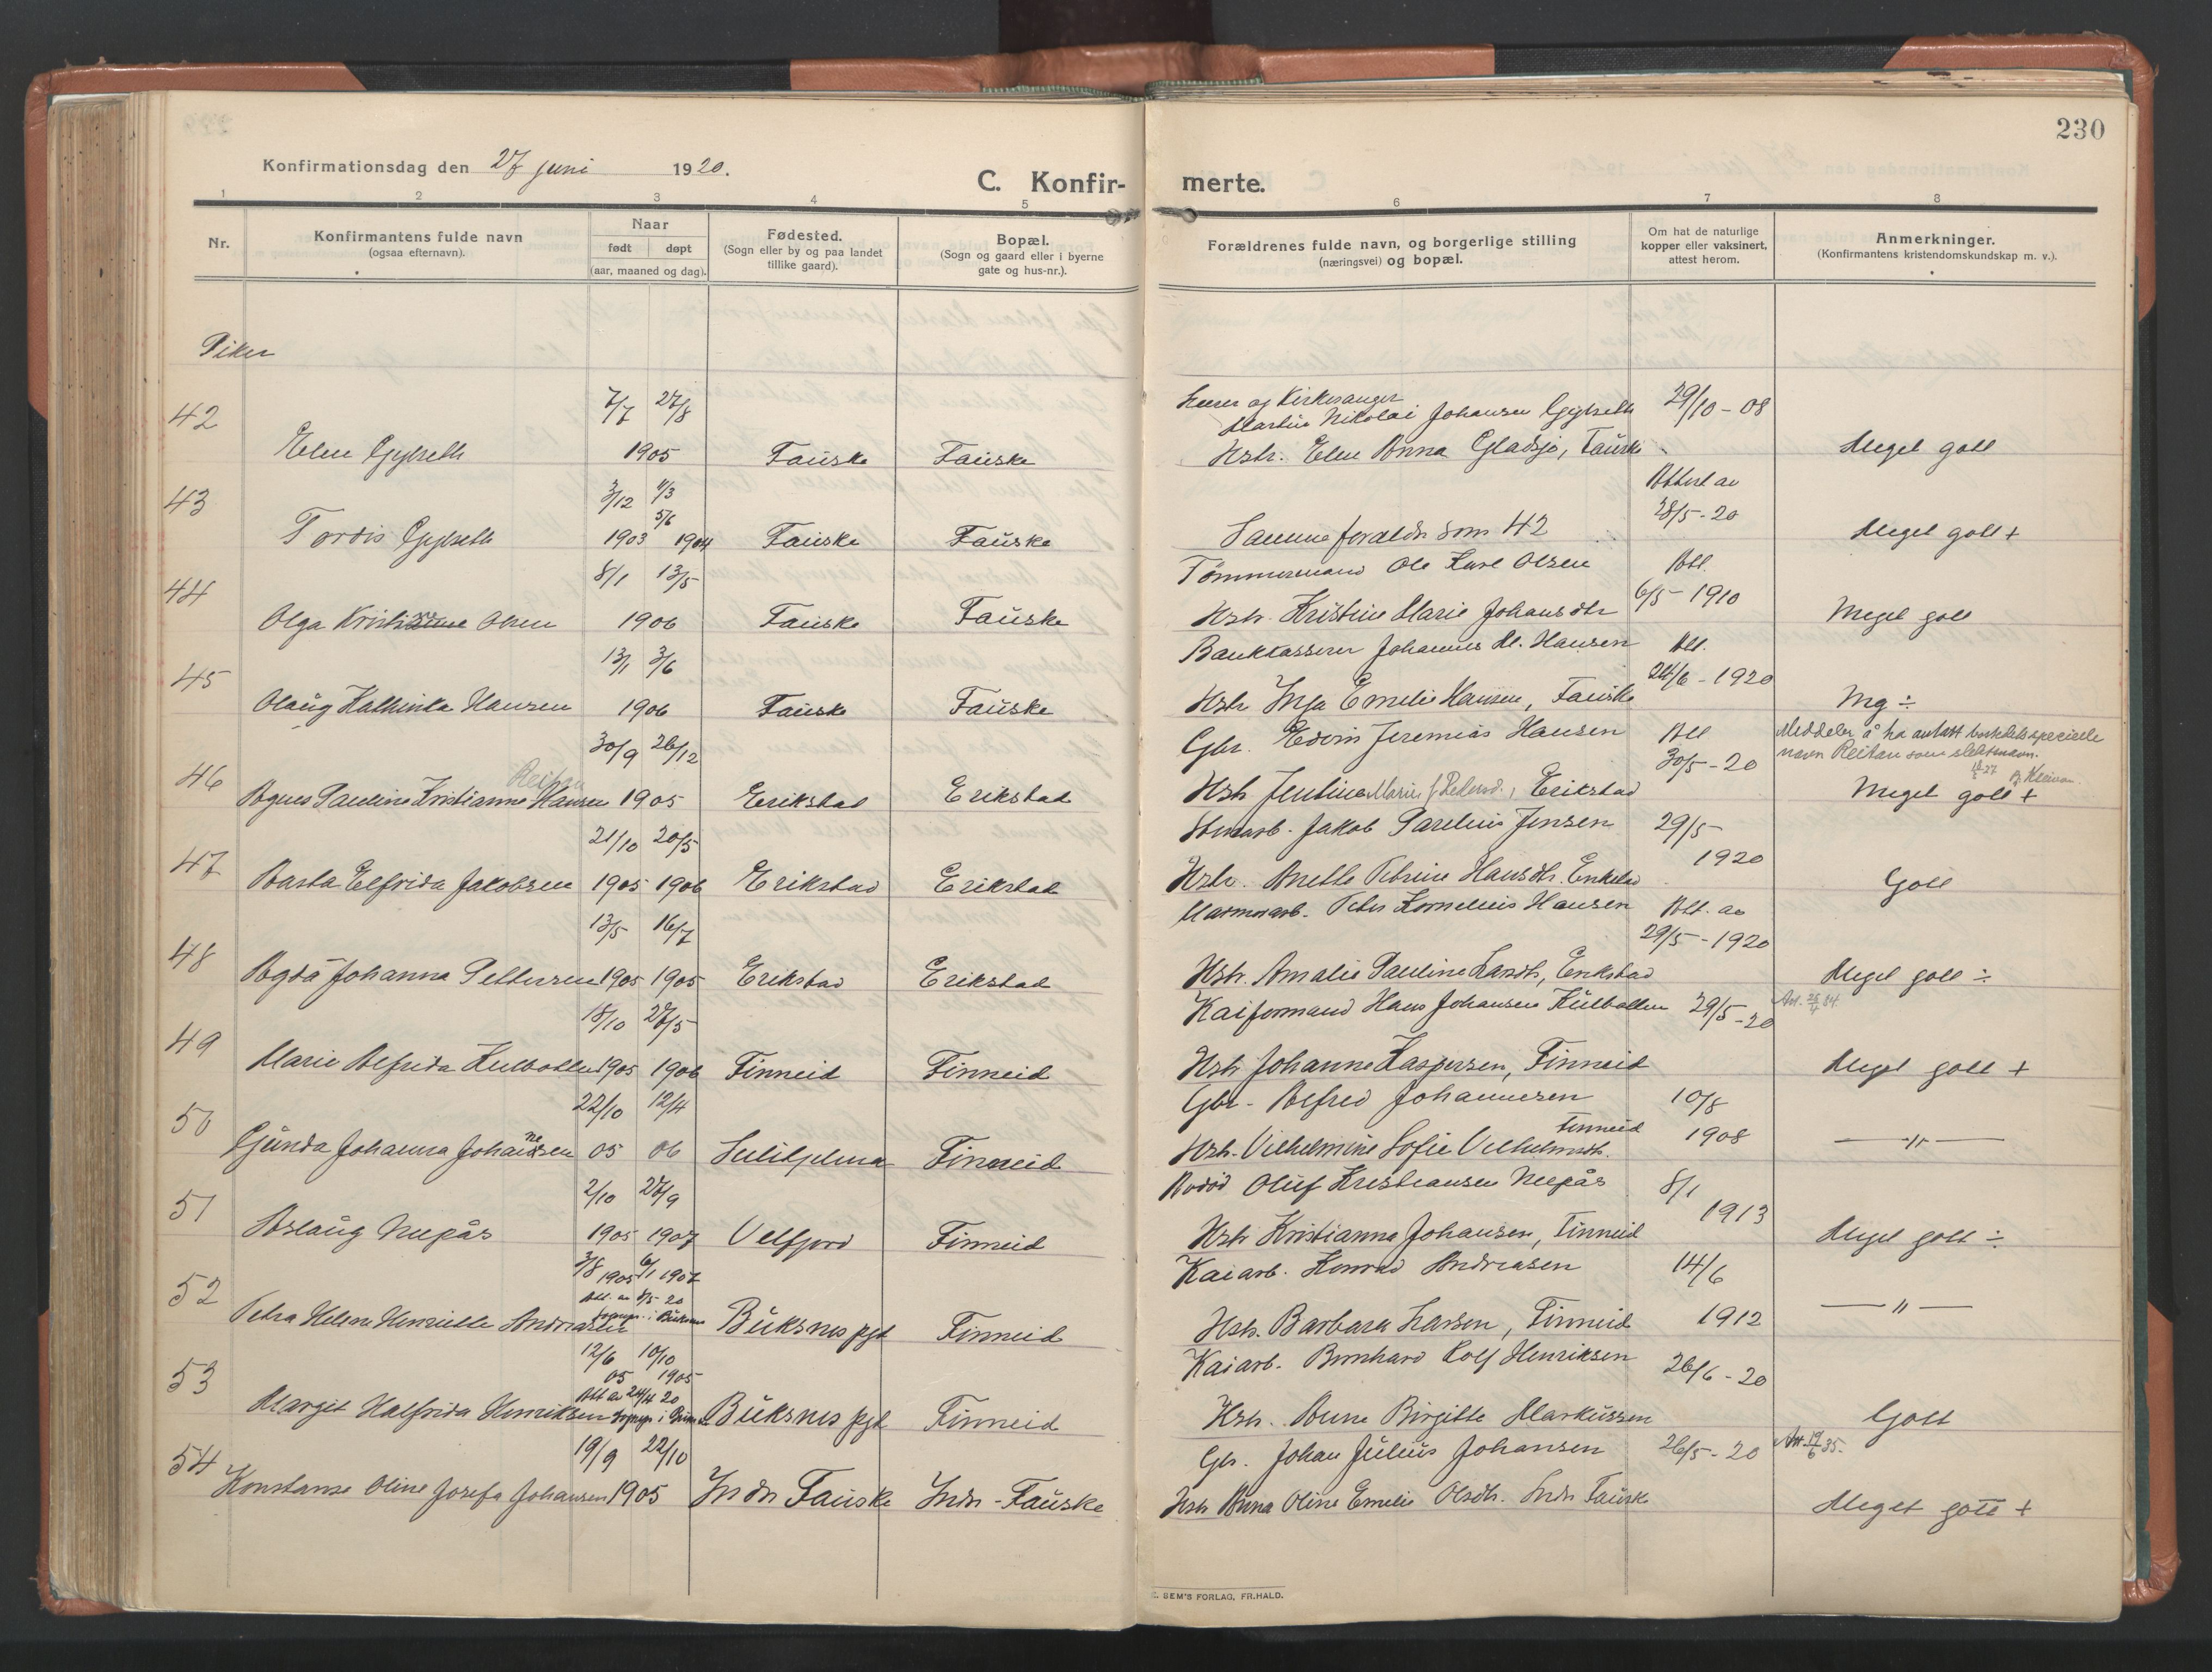 230
Konfirmationsdag den 27 juni 1920.
C. Konfir- merte.
1 2 3 4 5 6 7 8
Nr.
Konfirmantens fulde navn
(ogsaa efternavn).
Naar
født døpt
(aar, maaned og dag).
Fødested.
(Sogn eller by og paa landet
tillike gaard).
Bopæl.
(Sogn og gaard eller i byerne
gate og hus-nr.).
Forældrenes fulde navn, og borgerlige stilling
(næringsvei) og bopæl.
Om hat de naturlige
kopper eller vaksinert,
attest herom.
Anmerkninger.
(Konfirmantens kristendomskundskap m. v.).
Piker
42 7/7 27/8 Lærer og Kirkesanger
Martin Nikolai Johansen Gylseth 29/10-08
Elen Gylseth 1905 Fauske Fauske Hstr. Elen Anna Gladsjø, Fauske Meget godt
43 3/12 11/3 Attest av
5/6 28/5-20
Tordis Gylseth 1903 1904 Fauske Fauske Samme foreldre som 42 Meget godt +
44 8/1 13/5 Tømmermand Ole Karl Olsen Att.
6/5-1910
Olga Olsen 1906 Fauske Fauske Hstr. Kristine Marie Johansdtr Meget godt
45 13/1 3/6 Bankkasserer Johannes M. Hansen Att.
24/6-1920
Olaug Kathinka Hansen 1906 Fauske Fauske Hstr Inga Emelie Hansen, Fauske Mg ÷
46 30/9 26/12 Gbr. Edvin Jeremias Hansen Att
30/5-20
Meddeler å ha antatt
navn Reitan som slektsnavn.
Reitan
Agnes Pauline Kristianne Hansen 1905 Erikstad Erikstad Hstr Jentine Marie f. Pedersd., Erikstad Meget godt +
47 21/10 20/5 Stenarb. Jakob Parelius Jensen 29/5-
1920
Asta Elfrida Jakobsen 1905 1906 Erikstad Erikstad Hstr. Anette Petrine Hansdtr. Erikstad Godt
48 13/5 16/7 Marmorarb. Peter Kornelius Hansen Att. av
29/5-1920
Agda Johanna Pettersen 1905 1905 Erikstad Erikstad Hstr. Amalie Pauline Larsdtr, Erikstad Meget godt ÷
49 18/10 27/5 Kaiformand Hans Johansen Kulbotten 29/5-20
Marie Alfrida Kulbotten 1905 1906 Finneid Finneid Hstr Johanne Kaspersen, Finneid Meget godt +
50 22/10 12/4 Gbr. Alfred Johannesen 10/8
1908
Gunda Johanna Johannesen 05 06 Sulitjelma Finneid Hstr. Vilhelmine Sofie Vilhelmsdtr. Finneid —〃—
51 2/10 27/9 Oluf Kristiansen Nupås 8/1
1913
Aslaug Nupås 1905 1907 Velfjord Finneid Hstr Kristianna Johansen, Finneid Meget godt ÷
52 3/8 1905 6/1 1907 Kaiarb. Konrad Andreasen 14/6
Att. av 8/5 20
sognepr. i Buksnes
Petra Helene Henriette Andreasen Buksnes pgd Finneid Hstr. Barbara Larsen, Finneid 1912 —〃—
53 12/6 10/10 Kaiarb. Bernhard Rolf Henriksen 26/6-20
05 1905
Att av 24/4 20
Margit Halfrida Henriksen sognepr i Buksnes Buksnes pgd Finneid Hstr. Anne Birgitte Markussen Godt
54 19/9 22/10 Gbr. Johan Julius Johansen 26/5-20 Att. 19/6 35.
Konstanse Oline Josefa Johansen 1905 Indr Fauske Indr-Fauske Hstr Anna Oline Emelie Olsdtr. Indr Fauske Meget godt +
E. SEM'S FORLAG, FR.HALD.